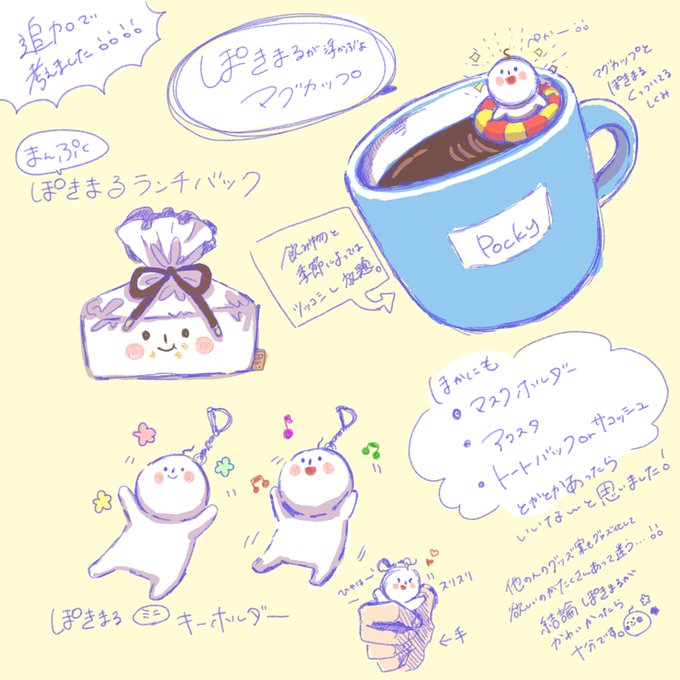 追加で
考えました
ぽきまるが浮かぶよ
マグカップ
ぺかー
マグカップと
ぽきまる
くっついてる
しくみ
まんぷく
ぽきまるランチバック
Pocky
飲み物と
季節によっては
ツッコミし放題。
ほかにも
・マスクホルダー
・アクスタ
・トートバックorサコッシュ
とかとかあったら
いいな〜と思いました!
他の人のグッズ案もグッズ化して
欲しいのがたくさんあって迷う…
結論ぽきまるが
かわいかったら
十分です。
ぽきまるミニキーホルダー
ひゃはー
スリスリ
←手